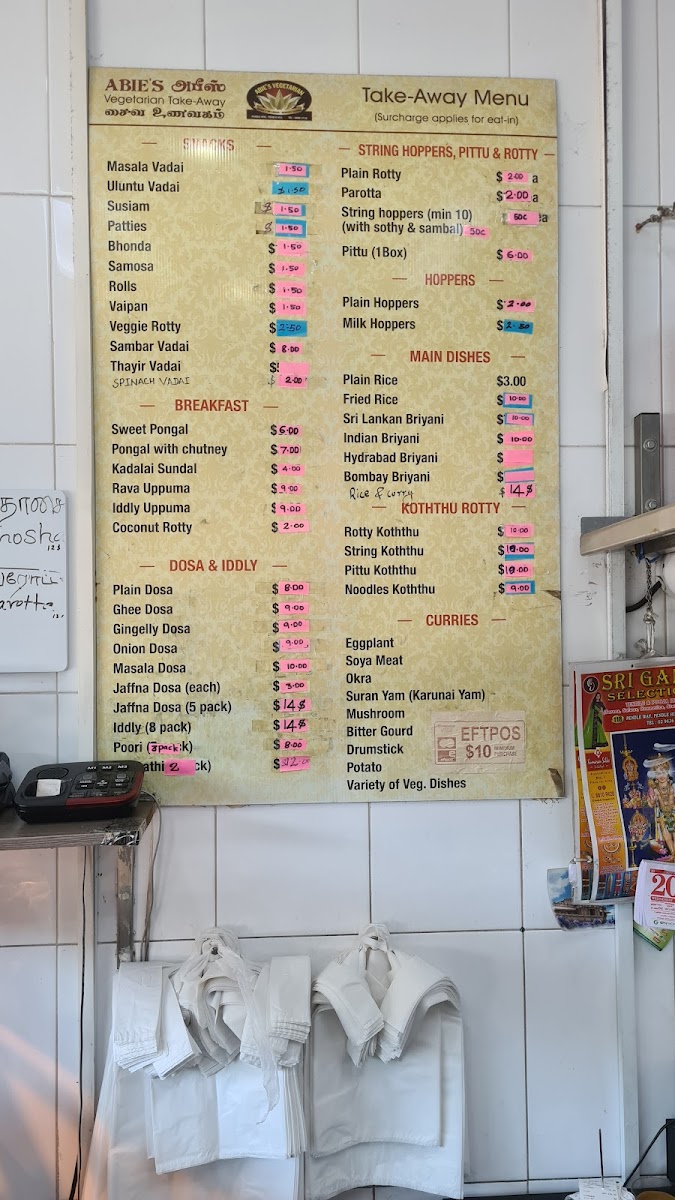 ABIE'S அபீஸ்
Vegetarian Take-Away
சைவ உணவகம்
ABIE'S VEGETARIAN
Take-Away Menu
(Surcharge applies for eat-in)
SNACKS
Masala Vadai 1.50
Uluntu Vadai $1.50
Susiam $ 1.50
Patties $ 1.50
Bhonda $ 1.50
Samosa $ 1.50
Rolls $ 1.50
Vaipan $ 1.50
Veggie Rotty $ 2.50
Sambar Vadai $ 8.00
Thayir Vadai $
SPINACH VADAI $ 2.00
BREAKFAST
Sweet Pongal $ 6.00
Pongal with chutney $ 7.00
Kadalai Sundal $ 4.00
Rava Uppuma $ 9.00
Iddly Uppuma $ 9.00
Coconut Rotty $ 2.00
DOSA & IDDLY
Plain Dosa $ 8.00
Ghee Dosa $ 9.00
Gingelly Dosa $ 9.00
Onion Dosa $ 9.00
Masala Dosa $ 10.00
Jaffna Dosa (each) $ 3.00
Jaffna Dosa (5 pack) $ 14$
Iddly (8 pack) $ 14$
Poori (3pack) $ 8.00
2 $ $12.00
STRING HOPPERS, PITTU & ROTTY
Plain Rotty $ 2.00 a
Parotta $ 2.00 a
String hoppers (min 10) 50c ea
(with sothy & sambal) 50c
Pittu (1Box) $ 6.00
HOPPERS
Plain Hoppers $ 2.00
Milk Hoppers $ 2.50
MAIN DISHES
Plain Rice $3.00
Fried Rice $ 10.00
Sri Lankan Briyani $ 10.00
Indian Briyani $ 10.00
Hydrabad Briyani $
Bombay Briyani $
Rice & curry $ 14$
KOTHTHU ROTTY
Rotty Koththu $ 10.00
String Koththu $ 10.00
Pittu Koththu $ 10.00
Noodles Koththu $ 9.00
CURRIES
Eggplant
Soya Meat
Okra
Suran Yam (Karunai Yam)
Mushroom
Bitter Gourd
Drumstick
Potato
Variety of Veg. Dishes
EFTPOS
$10 MINIMUM PURCHASE
தோசை
12$
M1 M2 M3
SRI GA
SELECTIO
20